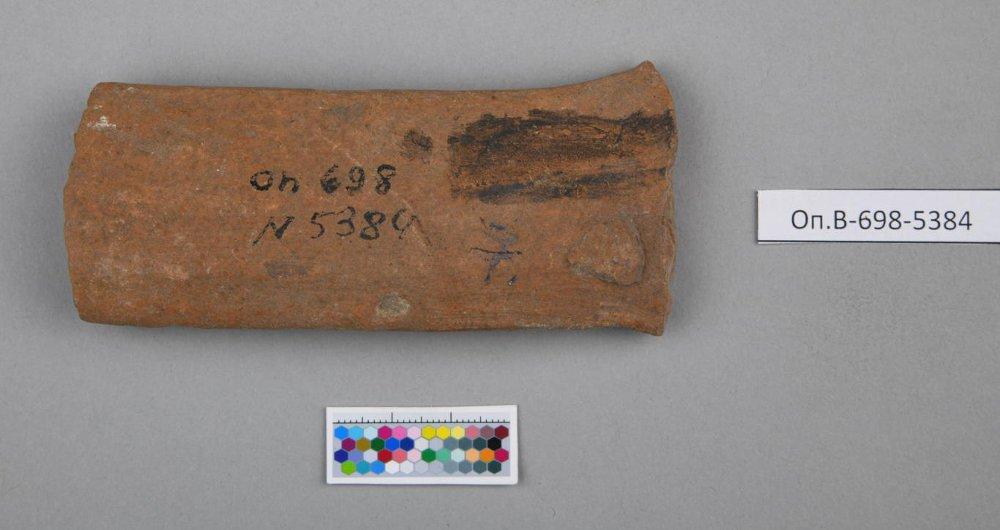 оп 698
N 5384
Оп.В-698-5384